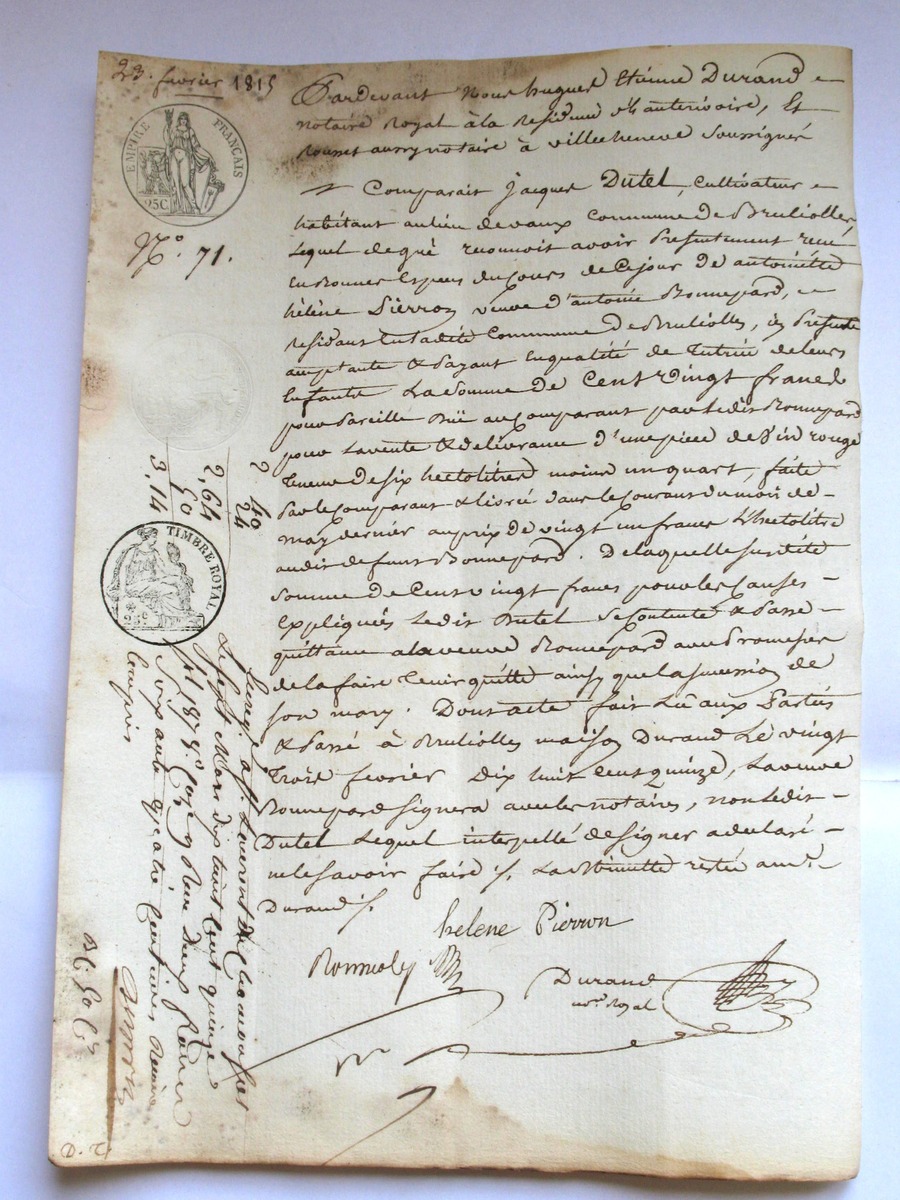 23. fevrier 1815
EMPIRE FRANÇAIS
25C
N.o 71.
Pardevant Nous hugues Etienne Durand
notaire Royal à la Residence de, Et
aussy notaire à villecheneve soussignés
Comparait jacques Dutel, cultivateur
habitant au lieu de vaux Commune de Brulioles,
Lequel de gré reconnoit avoir Presentement reçu
En Bonnes Especes du Cours de Ce jour de antoinette
hélène Pierron veuve d'antoine Bonnepard,
residant En la dite Commune de Brulioles, ici Presente
acceptante & Payant En qualité de Tutrice de leurs
Enfants La somme de Cent vingt francs
pour Pareille Düe au Comparant par Ledit Bonnepard
pour La vente & delivrance d'une piece de vin rouge
Teneur de six hectolitres moins un quart, faite
Par le Comparant & livrée dans le Courant du mois de
may dernier au prix de vingt un francs L'hectolitre
au dit defunt Bonnepard. De laquelle susdite
somme de Cent vingt francs pour les Causes
Expliquées Ledit Dutel se Contente & Passe
quittance a la veuve Bonnepard avec Promesse
de la faire Tenir quitte ainsy que la succession de
son mary. Dont acte fait Lü aux Parties
& Passé à Brulioles maison Durand Le vingt
Trois fevrier Dix huit Cent quinze, La veuve
Bonnepard signera avec les notaires, non Ledit
Dutel Lequel interpellé de signer a declaré
ne le savoir faire ./. La Minutte restée a m.e
Durand ./.
helene Pierron
Durand
no.re Royal
2 40
24
2,64
50
3,14
TIMBRE ROYAL
25.c
Le sept Mars dix huit Cent quinze
Reçu deux francs
soixante quatre Centimes
Compris
D. T.